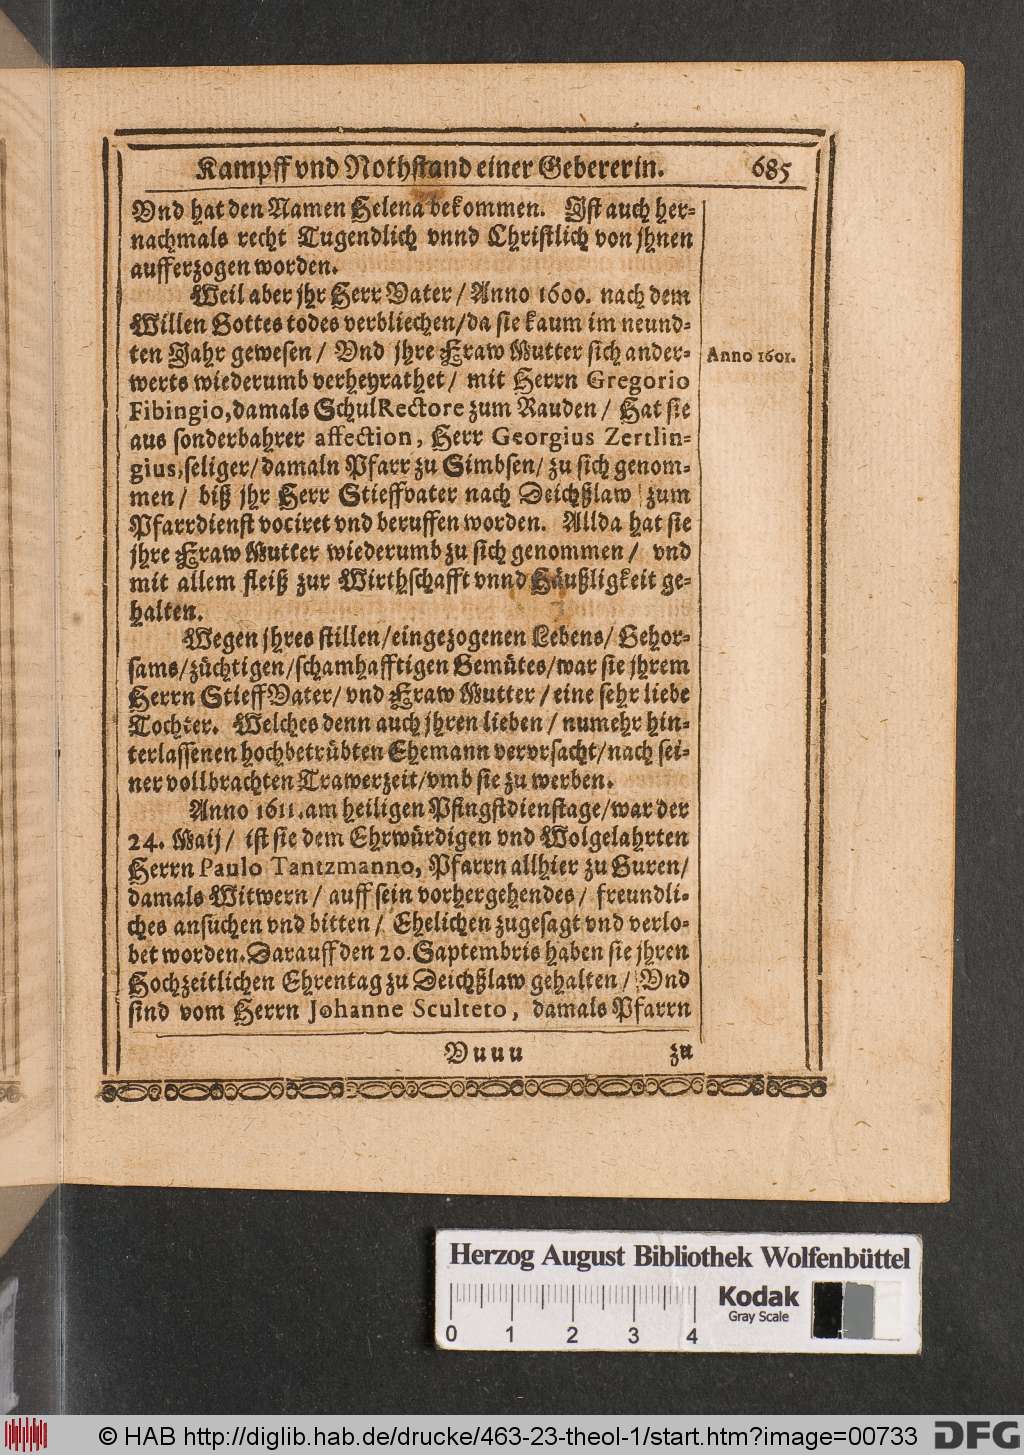 Kampff vnd Nothstand einer Gebererin. 685
Vnd hat den Namen Helena bekommen. Ist auch her-
nachmals recht Tugendlich vnnd Christlich von jhnen
aufferzogen worden.
Weil aber jhr Herr Vater / Anno 1600. nach dem
Willen Gottes todes verbliechen/da sie kaum im neund-
ten Jahr gewesen / Vnd jhre Fraw Mutter sich ander-
Anno 1601.
werts wiederumb verheyrathet / mit Herrn Gregorio
Fibingio, damals SchulRectore zum Rauden / Hat sie
aus sonderbahrer affection, Herr Georgius Zertlin-
gius, seliger/damaln Pfarr zu Simbsen/ zu sich genom-
men / biß jhr Herr Stieffvater nach Deichßlaw zum
Pfarrdienst vociret vnd beruffen worden. Allda hat sie
jhre Fraw Mutter wiederumb zu sich genommen / vnd
mit allem fleiß zur Wirthschafft vnnd Häußligkeit ge-
halten.
Wegen jhres stillen/eingezogenen Lebens/ Gehor-
sams/züchtigen/schamhafftigen Gemütes/war sie jhrem
Herrn StieffVater/ vnd Fraw Mutter / eine sehr liebe
Tochter. Welches denn auch jhren lieben / numehr hin-
terlassenen hochbetrübten Ehemann vervrsacht/nach sei-
ner vollbrachten Trawerzeit/vmb sie zu werben.
Anno 1611. am heiligen Pfingstdienstage/war der
24. Maij / ist sie dem Ehrwürdigen vnd Wolgelahrten
Herrn Paulo Tantzmanno, Pfarrn allhier zu Guren/
damals Witwern / auff sein vorhergehendes / freundli-
ches ansuchen vnd bitten / Ehelichen zugesagt vnd verlo-
bet worden. Darauff den 20. Saptembris haben sie jhren
Hochzeitlichen Ehrentag zu Deichßlaw gehalten / Vnd
sind vom Herrn Johanne Sculteto, damals Pfarrn
Vuuu zu
Herzog August Bibliothek Wolfenbüttel
Kodak
Gray Scale
0 1 2 3 4
© HAB http://diglib.hab.de/drucke/463-23-theol-1/start.htm?image=00733
DFG